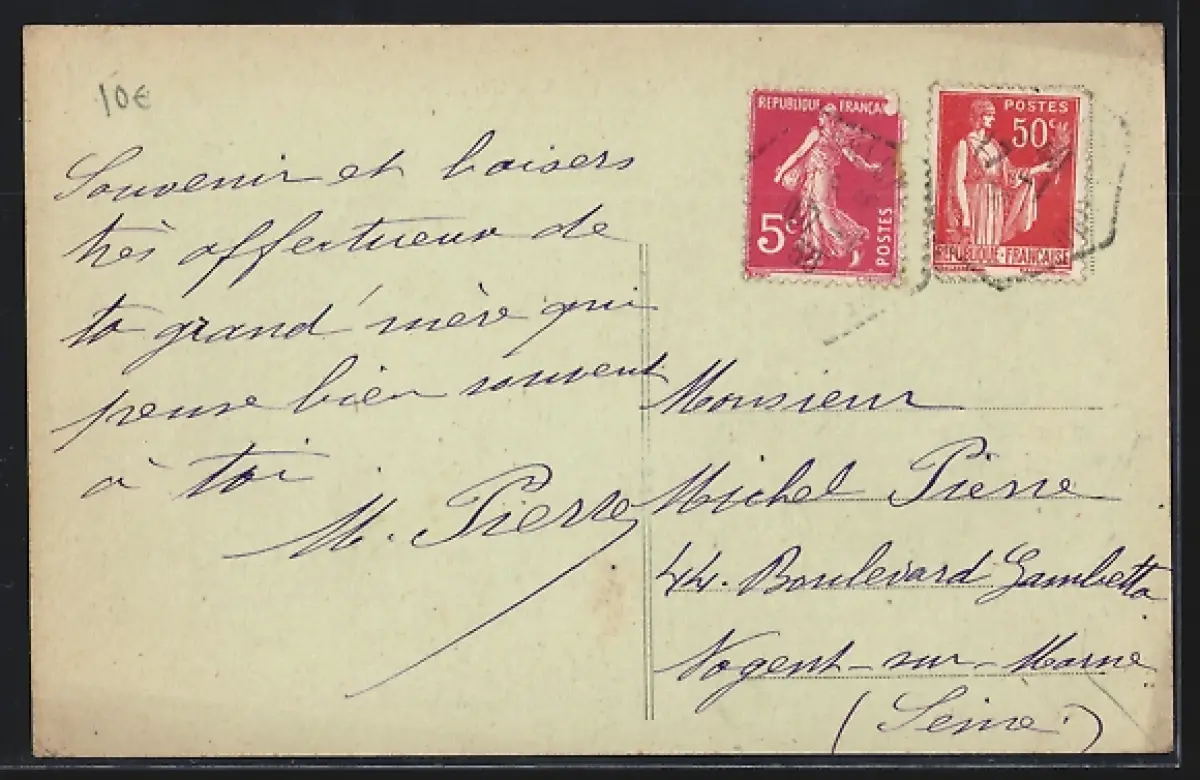 10€
Souvenir et baisers
très affectueux de
ta grand'mère qui
pense bien souvent
à toi
M. Pierre
REPUBLIQUE FRANÇAI
5c
POSTES
POSTES
50c
REPUBLIQUE-FRANÇAISE
Monsieur
Michel Pierre
44. Boulevard Gambetta
Nogent-sur-Marne
(Seine.)